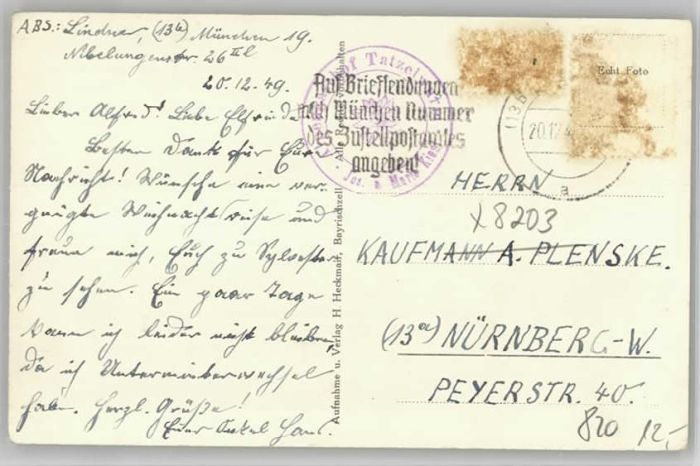 ABS.: Lindner, (13b) München 19.
Nibelungenstr. 26 III l
20.12.49.
Lieber Alfred! Liebe Elfriede!
Besten Dank für Eure
Nachricht! Wünsche eine ver-
gnügte Weihnachtsreise und
freue mich, Euch zu Sylvester
zu sehen. Ein paar Tage
kann ich leider nicht bleiben,
da ich Untermieterwechsel
habe. Herzl. Grüße!
Euer Onkel Hans.
Aufnahme u. Verlag H. Heckmair, Bayrischzell - Alle Rechte vorbehalten
Tatzel
Jos. u. Maria
Auf Briefsendungen
nach München Nummer
des Zustellpostamtes
angeben!
(13b)
20.12.4
a
Echt Foto
HERRN
x8203
KAUFMANN A. PLENSKE.
(13a) NÜRNBERG-W.
PEYERSTR. 40.
820 12,-